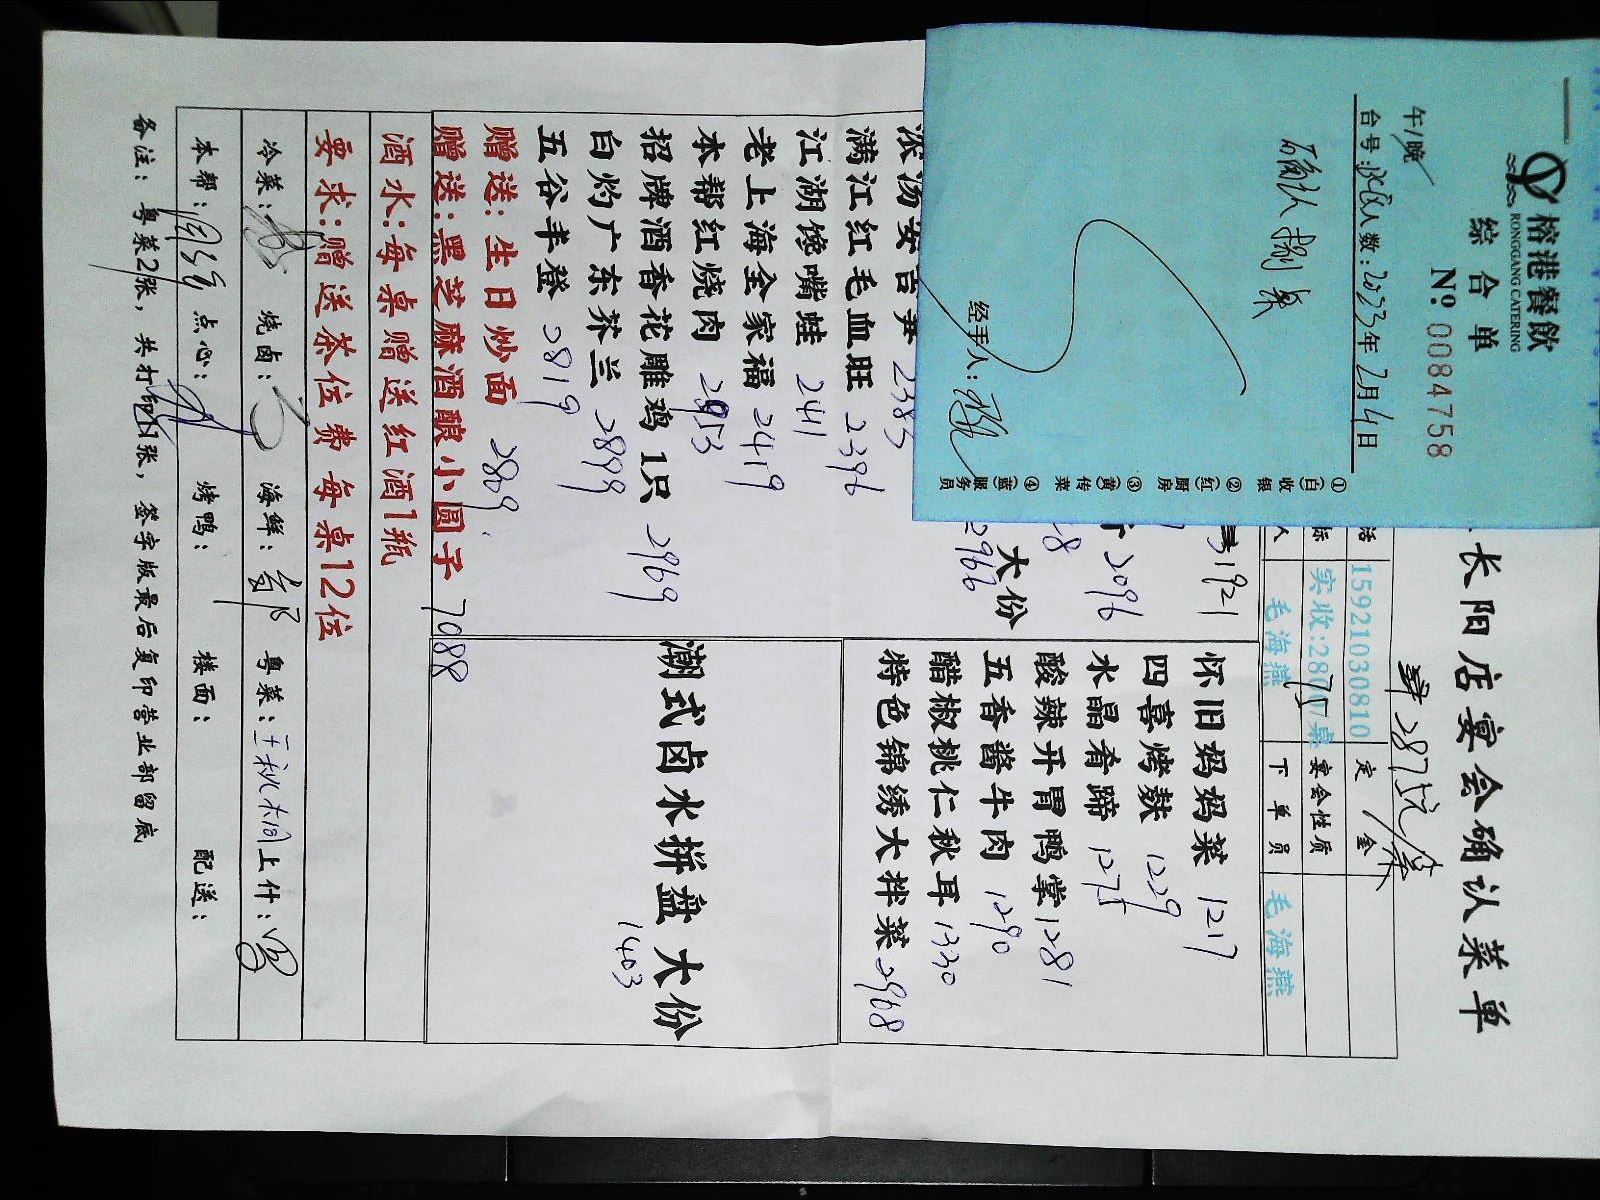 榕港餐飲
RONGGANG CATERING
综合单
№ 0084758
午/晚
台号: 人数: 2023年2月4日
确认
经手人:
①(白)收银 ②(红)厨房 ③(黄)传菜 ④(蓝)服务员
长阳店宴会确认菜单
15921030810 定金
实收:280 /桌 宴会性质
毛海燕 下单员 毛海燕
1921
2096
大份
2966
浓汤安吉笋 2385
满江红毛血旺 2396
江湖馋嘴蛙 2411
老上海全家福 2419
本帮红烧肉
招牌酒香花雕鸡1只 2969
白灼广东芥兰 2899
五谷丰登 3819
赠送:生日炒面 2809
赠送:黑芝麻酒酿小圆子 7088
怀旧妈妈菜 1217
四喜烤麸 1229
水晶肴蹄 1275
酸辣开胃鸭掌 1281
五香酱牛肉 1290
醋椒桃仁秋耳 1330
特色锦绣大拌菜 2968
潮式卤水拼盘 大份
1403
酒水:每桌赠送红酒1瓶
要求:赠送茶位费每桌12位
冷菜: 烧卤: 海鲜: 粤菜: 上什:
本帮: 点心: 烤鸭: 楼面: 配送:
备注:粤菜2张,共打印11张,签字版最后复印营业部留底